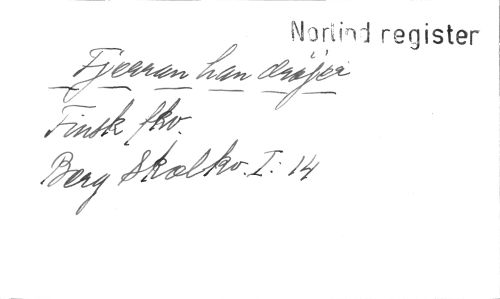 Nortind register
Fjerran han dröjer
Finsk fkv.
Berg Skolkv. I: 14